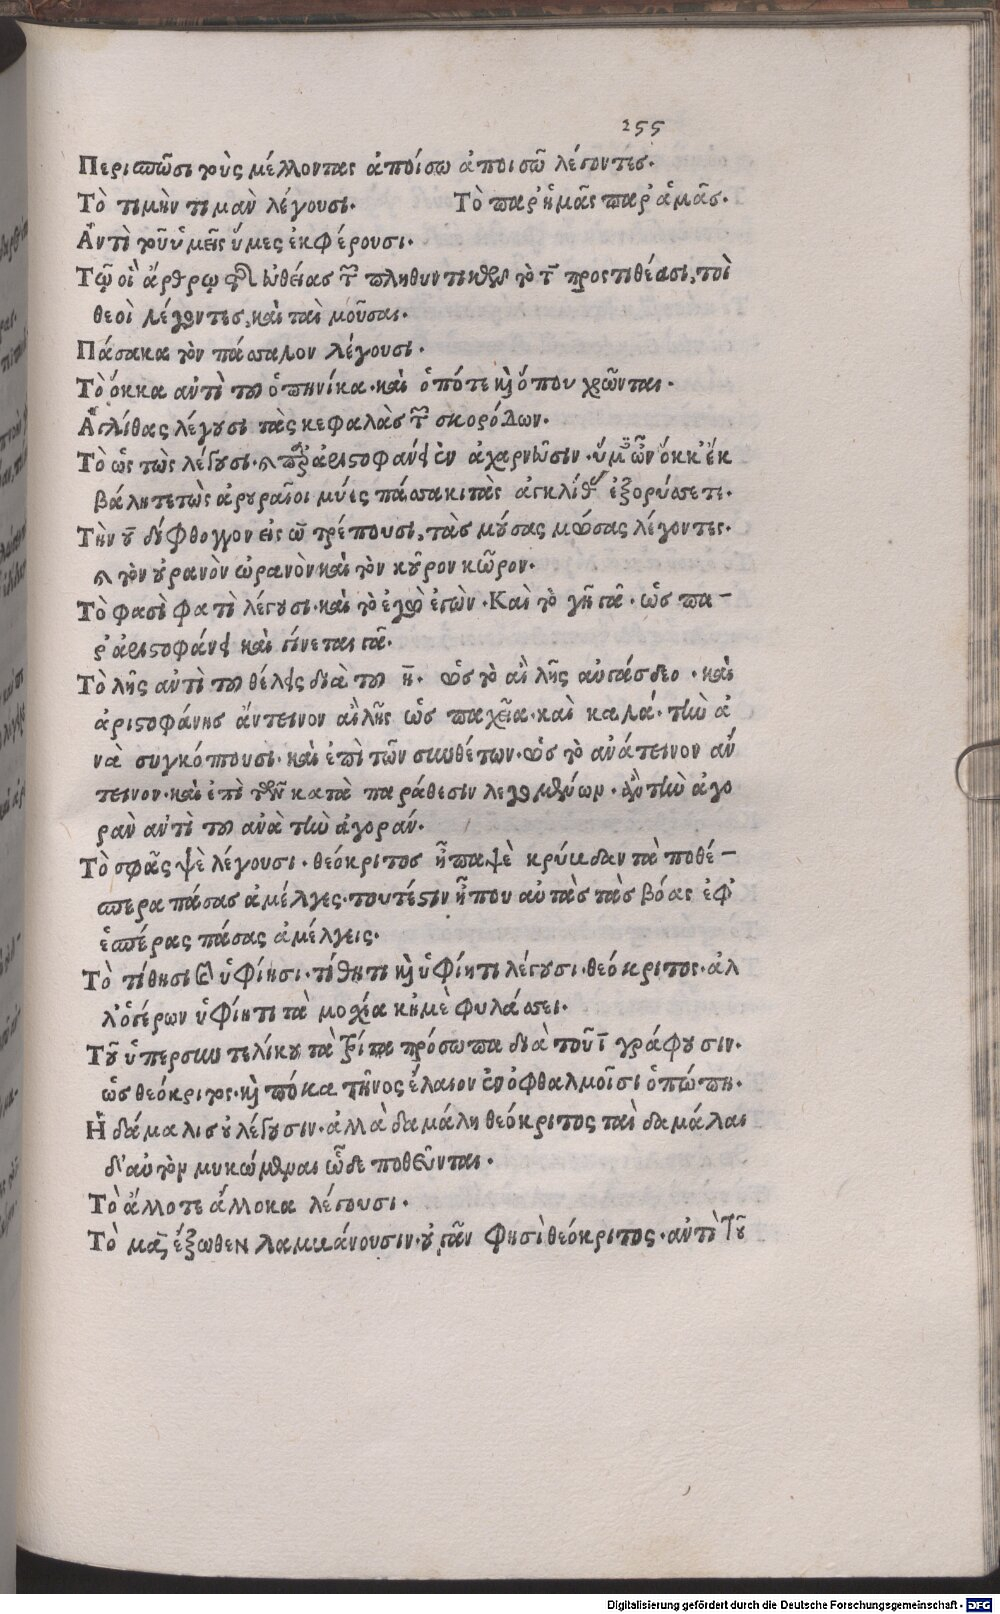 255
Περισπῶσι τοὺς μέλλοντας ἀποίσω ἀποισῶ λέγοντες.
Τὸ τιμὴν τιμὰν λέγουσι. Τὸ παρ' ἡμᾶς παρ' ἁμᾶς.
Ἀντὶ τοῦ ὑμεῖς ὕμες ἐκφέρουσι.
Τῷ οἱ ἄρθρῳ τῆς εὐθείας τῶν πληθυντικῶν τὸ τ προστιθέασι, τοὶ
θεοὶ λέγοντες, καὶ ταὶ μοῦσαι.
Πάσακα τὸν πάσσαλον λέγουσι.
Τὸ ὅκκα αὐτὶ τοῦ ὁπηνίκα. καὶ ὁπότε καὶ ὅπου χρῶνται.
Ἀγλίθας λέγουσι τὰς κεφαλὰς τῶν σκορόδων.
Τὸ ὡς τὼς λέγουσι. καὶ παρ' ἀριστοφάνει ἐν ἀχαρνεῦσιν. ὑμῶν ὅκκ' ἐκ
βάλητε τὼς ἀρουραῖοι μύες πάσσακι τὰς ἀγκλίθας ἐξορύσσετε.
Τὴν ου δίφθογγον εἰς ω τρέπουσι, τὰς μούσας μώσας λέγοντες.
καὶ τὸν οὐρανὸν ὠρανὸν καὶ τὸν κοῦρον κῶρον.
Τὸ φασὶ φατὶ λέγουσι. καὶ τὸ ἐγὼ ἐγών. Καὶ τὸ γῆ γᾶ. ὡς πα-
ρ' ἀριστοφάνει καὶ γίνεται γᾶ.
Τὸ λῆς αὐτὶ τοῦ θέλεις διὰ τοῦ η. ὡς τὸ αἰ λῆς αὐγάσδεο. καὶ
ἀριστοφάνης ἄντεινον αἰ λῆς ὡς παχεῖα. καὶ καλά. τὴν ἀ
νὰ συγκόπτουσι. καὶ ἐπὶ τῶν συνθέτων. ὡς τὸ ἀνάτεινον ἄν
τεινον. καὶ ἐπὶ τῶν κατὰ παράθεσιν λεγομένων. ἂν τὴν ἀγο
ρὰν αὐτὶ τοῦ ἀνὰ τὴν ἀγοράν.
Τὸ σφᾶς ψὲ λέγουσι. θεόκριτος ἦ πα ψὲ κρύβδαν τὰ ποθέ-
σπερα πάσας ἀμέλγες. τουτέστιν ἦ που αὐτὰς τὰς βόας ἐφ'
ἑσπέρας πάσας ἀμέλγεις.
Τὸ τίθησι καὶ ὑφίησι. τίθητι καὶ ὑφίητι λέγουσι. θεόκριτος. ἀλ
λ' ὁ γέρων ὑφίητι τὰ μοχία κἠμὲ φυλάσσει.
Τοῦ ὑπερσυντελίκου τὰ τρίτα πρόσωπα διὰ τοῦ ι γράφουσιν.
ὡς θεόκριτος. καὶ πόκα τῆνος ἔλαιον ἐν ὀφθαλμοῖσι ὀπώπη.
Ἡ δάμαλις οὐ λέγουσιν. ἀλλὰ δαμάλη θεόκριτος ταὶ δαμάλαι
δ' αὐτὸν μυκώμεναι ὧδε ποθεῦνται.
Τὸ ἄλλοτε ἄλλοκα λέγουσι.
Τὸ μὰ ἔξωθεν λαμβάνουσιν. οὐ γᾶν φησὶ θεόκριτος. αὐτὶ τοῦ
Digitalisierung gefördert durch die Deutsche Forschungsgemeinschaft - DFG